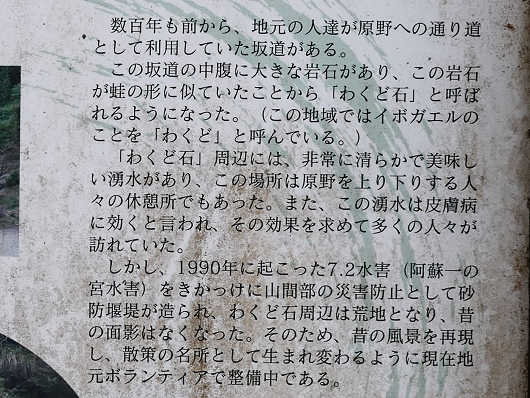 数百年も前から、地元の人達が原野への通り道
として利用していた坂道がある。
この坂道の中腹に大きな岩石があり、この岩石
が蛙の形に似ていたことから「わくど石」と呼ば
れるようになった。（この地域ではイボガエルの
ことを「わくど」と呼んでいる。）
「わくど石」周辺には、非常に清らかで美味し
い湧水があり、この場所は原野を上り下りする人
々の休憩所でもあった。また、この湧水は皮膚病
に効くと言われ、その効果を求めて多くの人々が
訪れていた。
しかし、1990年に起こった7.2水害（阿蘇一の
宮水害）をきかっけに山間部の災害防止として砂
防堰堤が造られ、わくど石周辺は荒地となり、昔
の面影はなくなった。そのため、昔の風景を再現
し、散策の名所として生まれ変わるように現在地
元ボランティアで整備中である。